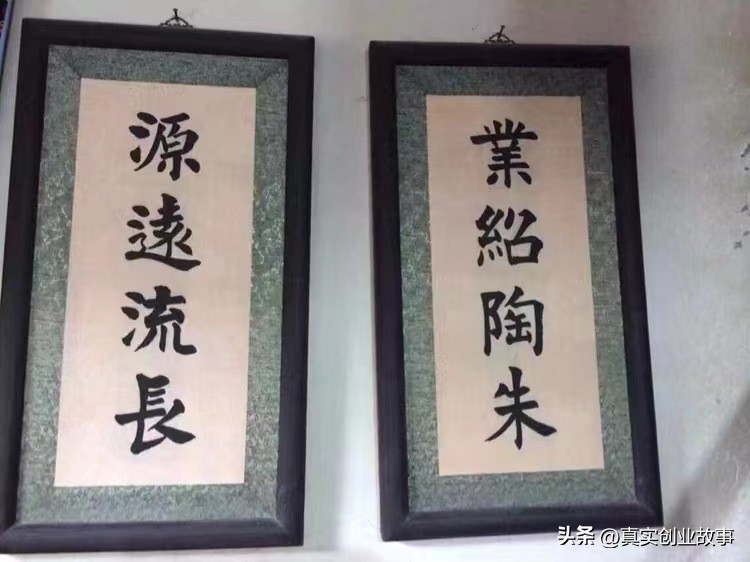 業紹陶朱
源遠流長
头条 @真实创业故事